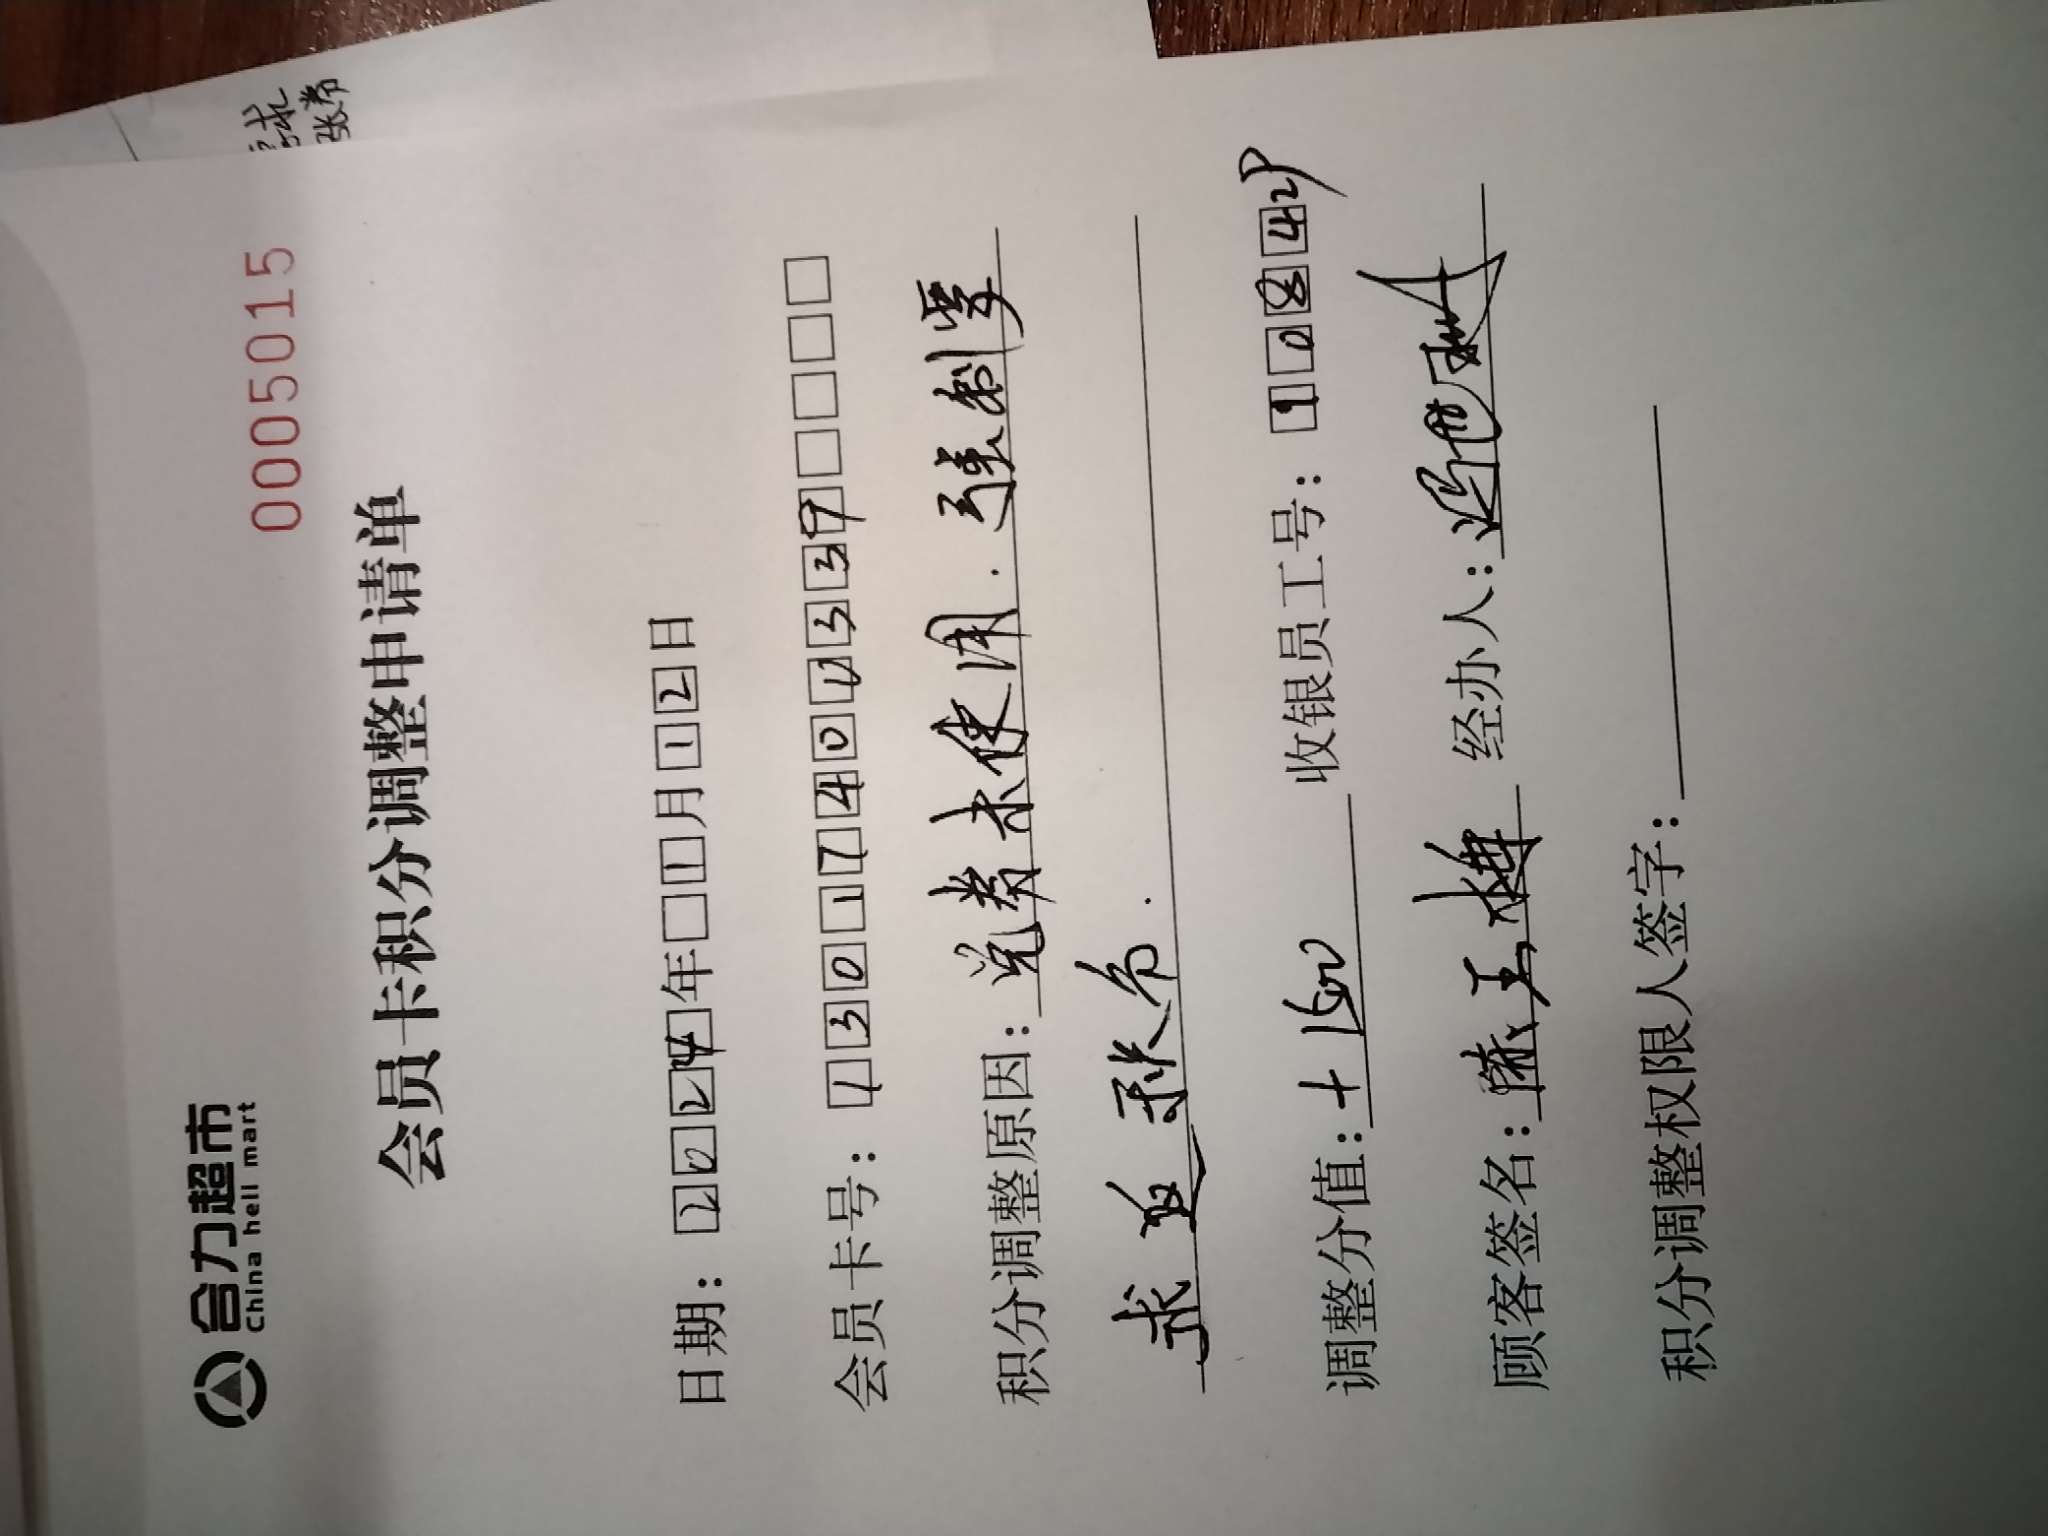 合力超市
China hell mart
0005015
会员卡积分调整申请单
日期：2024年1月12日
会员卡号：1301740033
积分调整原因：兑券未使用.强制要
求退积分.
调整分值：+ 收银员工号：10842
顾客签名：玉梅 经办人：冯
积分调整权限人签字：